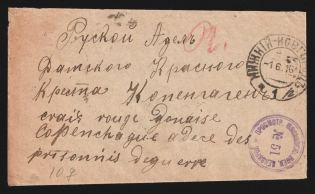 Руской Адель
Датскаго Краснаго
Креста Копенгаген
craix rouge Danaise
Copenchague a Dece des
prisonnis deguerre
107
НИЖНІЙ-НОВГОРОД
1.6.16
№ 51